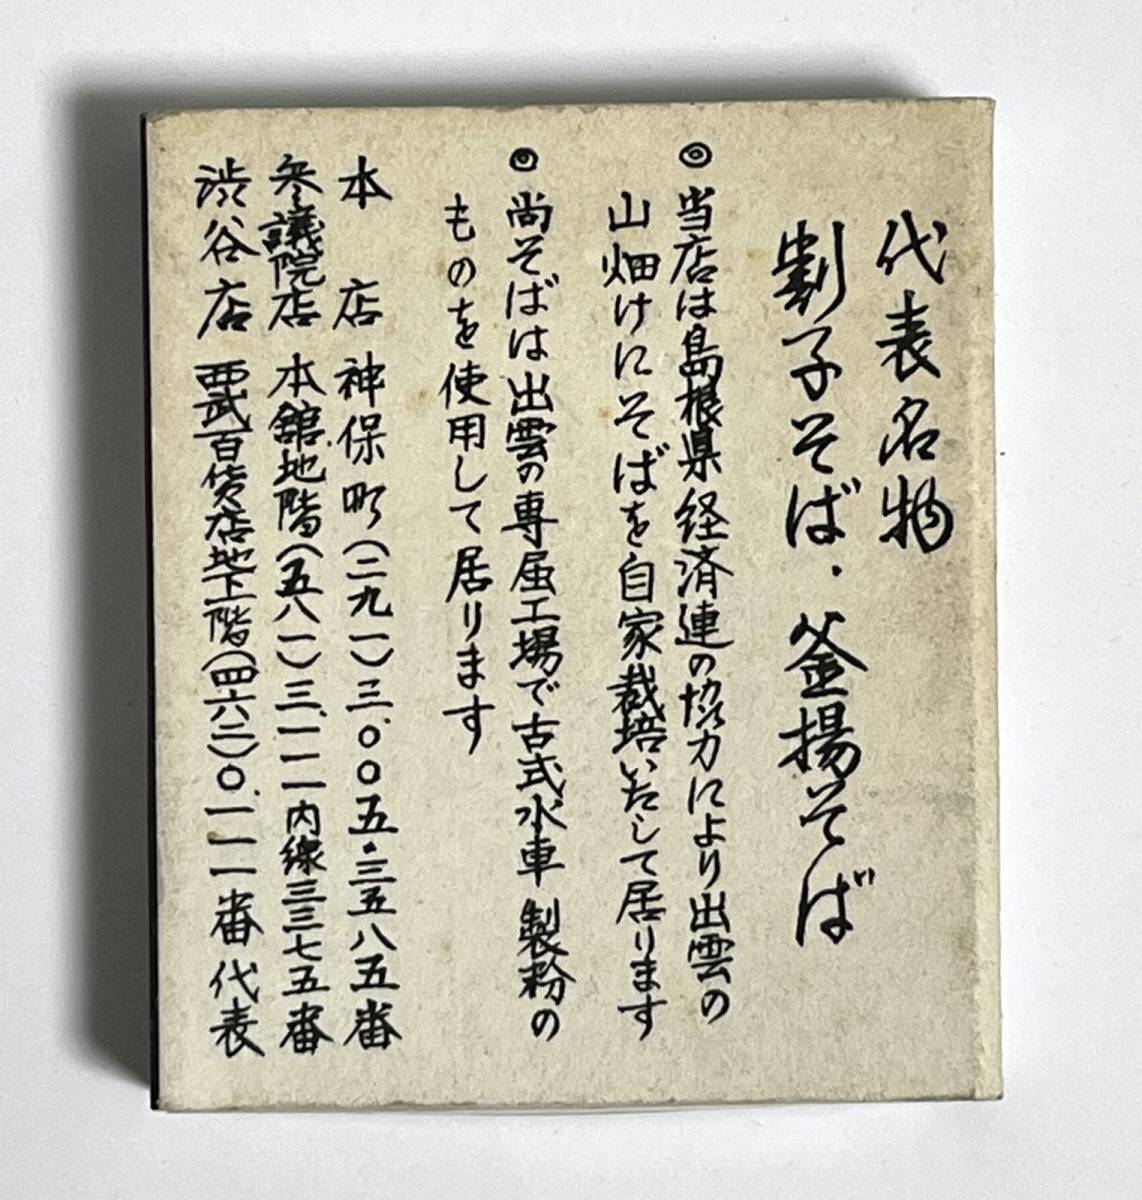 代表名物
割子そば・釜揚そば
◎当店は島根県経済連の協力により出雲の
山畑けにそばを自家栽培いたして居ります
◎尚そばは出雲の専属工場で古式水車製粉の
ものを使用して居ります
本店 神保町(二九一)三〇〇五・三五八五番
参議院店 本舘地階(五八一)三一一一内線三三七五番
渋谷店 西武百貨店地下階(四六二)〇一一一番代表